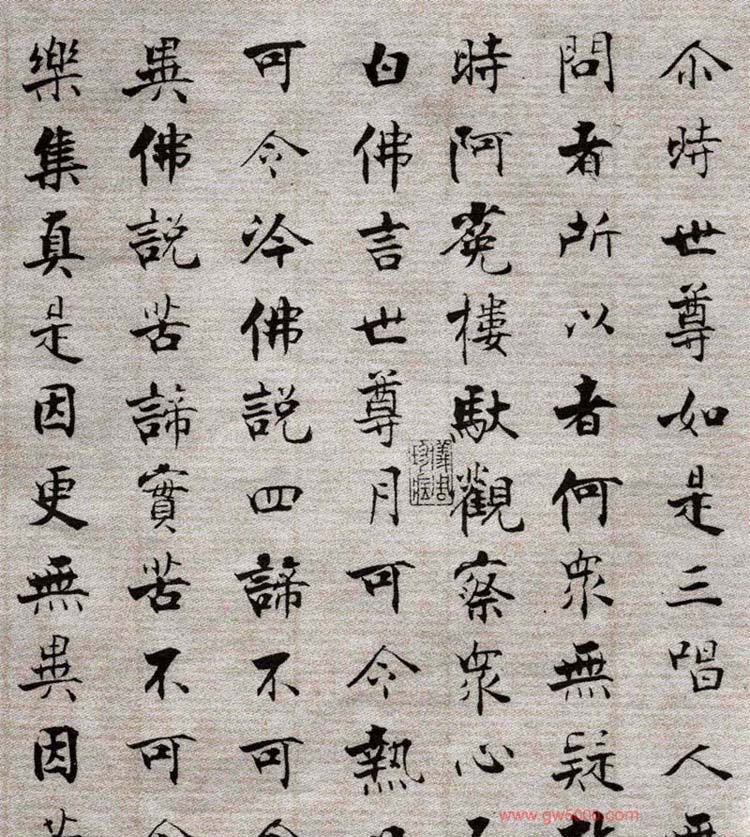 尒時世尊如是三唱人無
問者所以者何衆無疑
時阿㝹樓馱觀察衆心
白佛言世尊月可令熱
可令冷佛說四諦不可令
異佛說苦諦實苦不可令
樂集真是因更無異因苦
儀周珍藏
www.gw5000.com